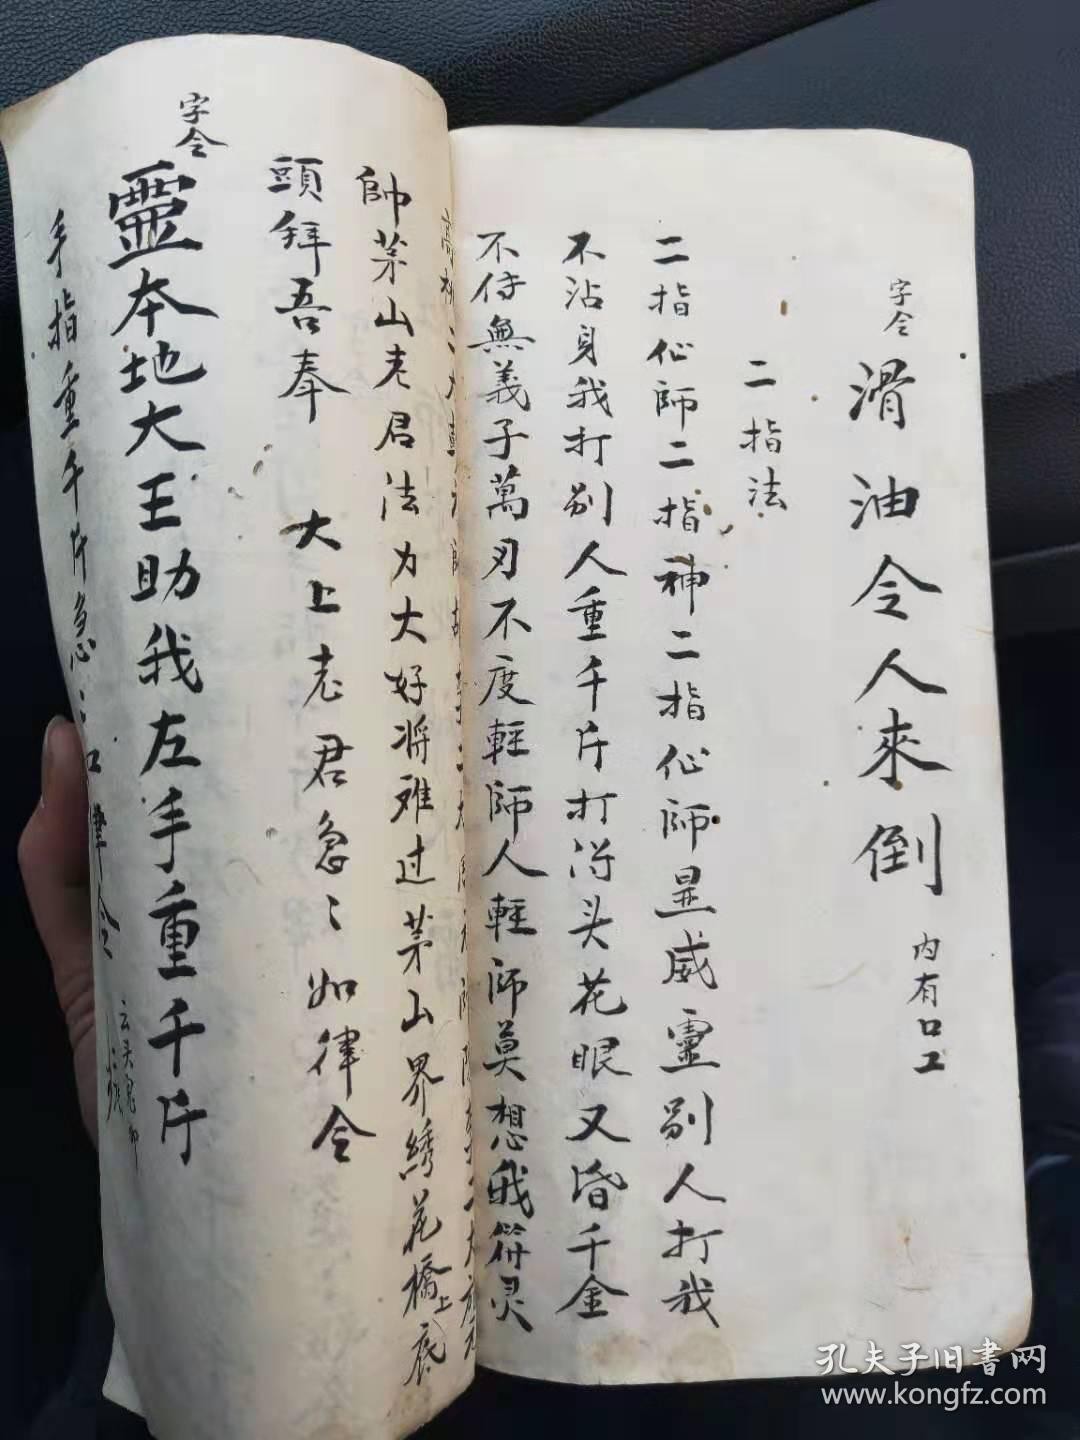 字令
滑油令人來倒
内有口工
二指法
二指仙師二指神二指仙師显威靈别人打我
不沾身我打别人重千斤打得头花眼又昏千金
不传無義子萬刃不度輕師人輕師莫想我符灵
帥茅山老君法力大好将难过茅山界绣花橋上底
頭拜吾奉 大上老君急〻如律令
字令
靈本地大王助我左手重千斤
手指重千斤急〻
令
孔夫子旧書网
www.kongfz.com